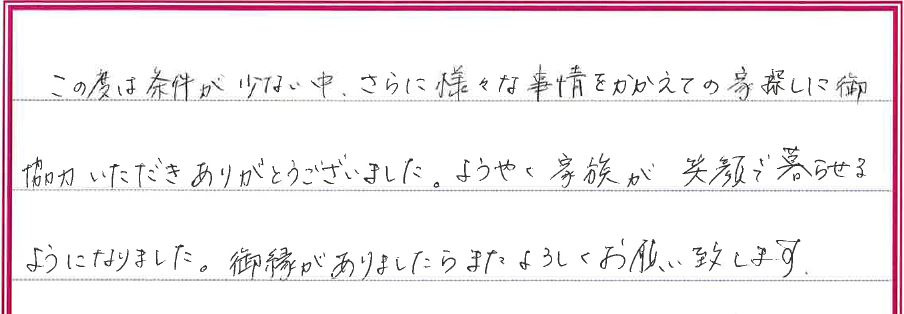 この度は条件が少ない中、さらに様々な事情をかかえての家探しに御
協力いただきありがとうございました。ようやく家族が笑顔で暮らせる
ようになりました。御縁がありましたらまたよろしくお願い致します.